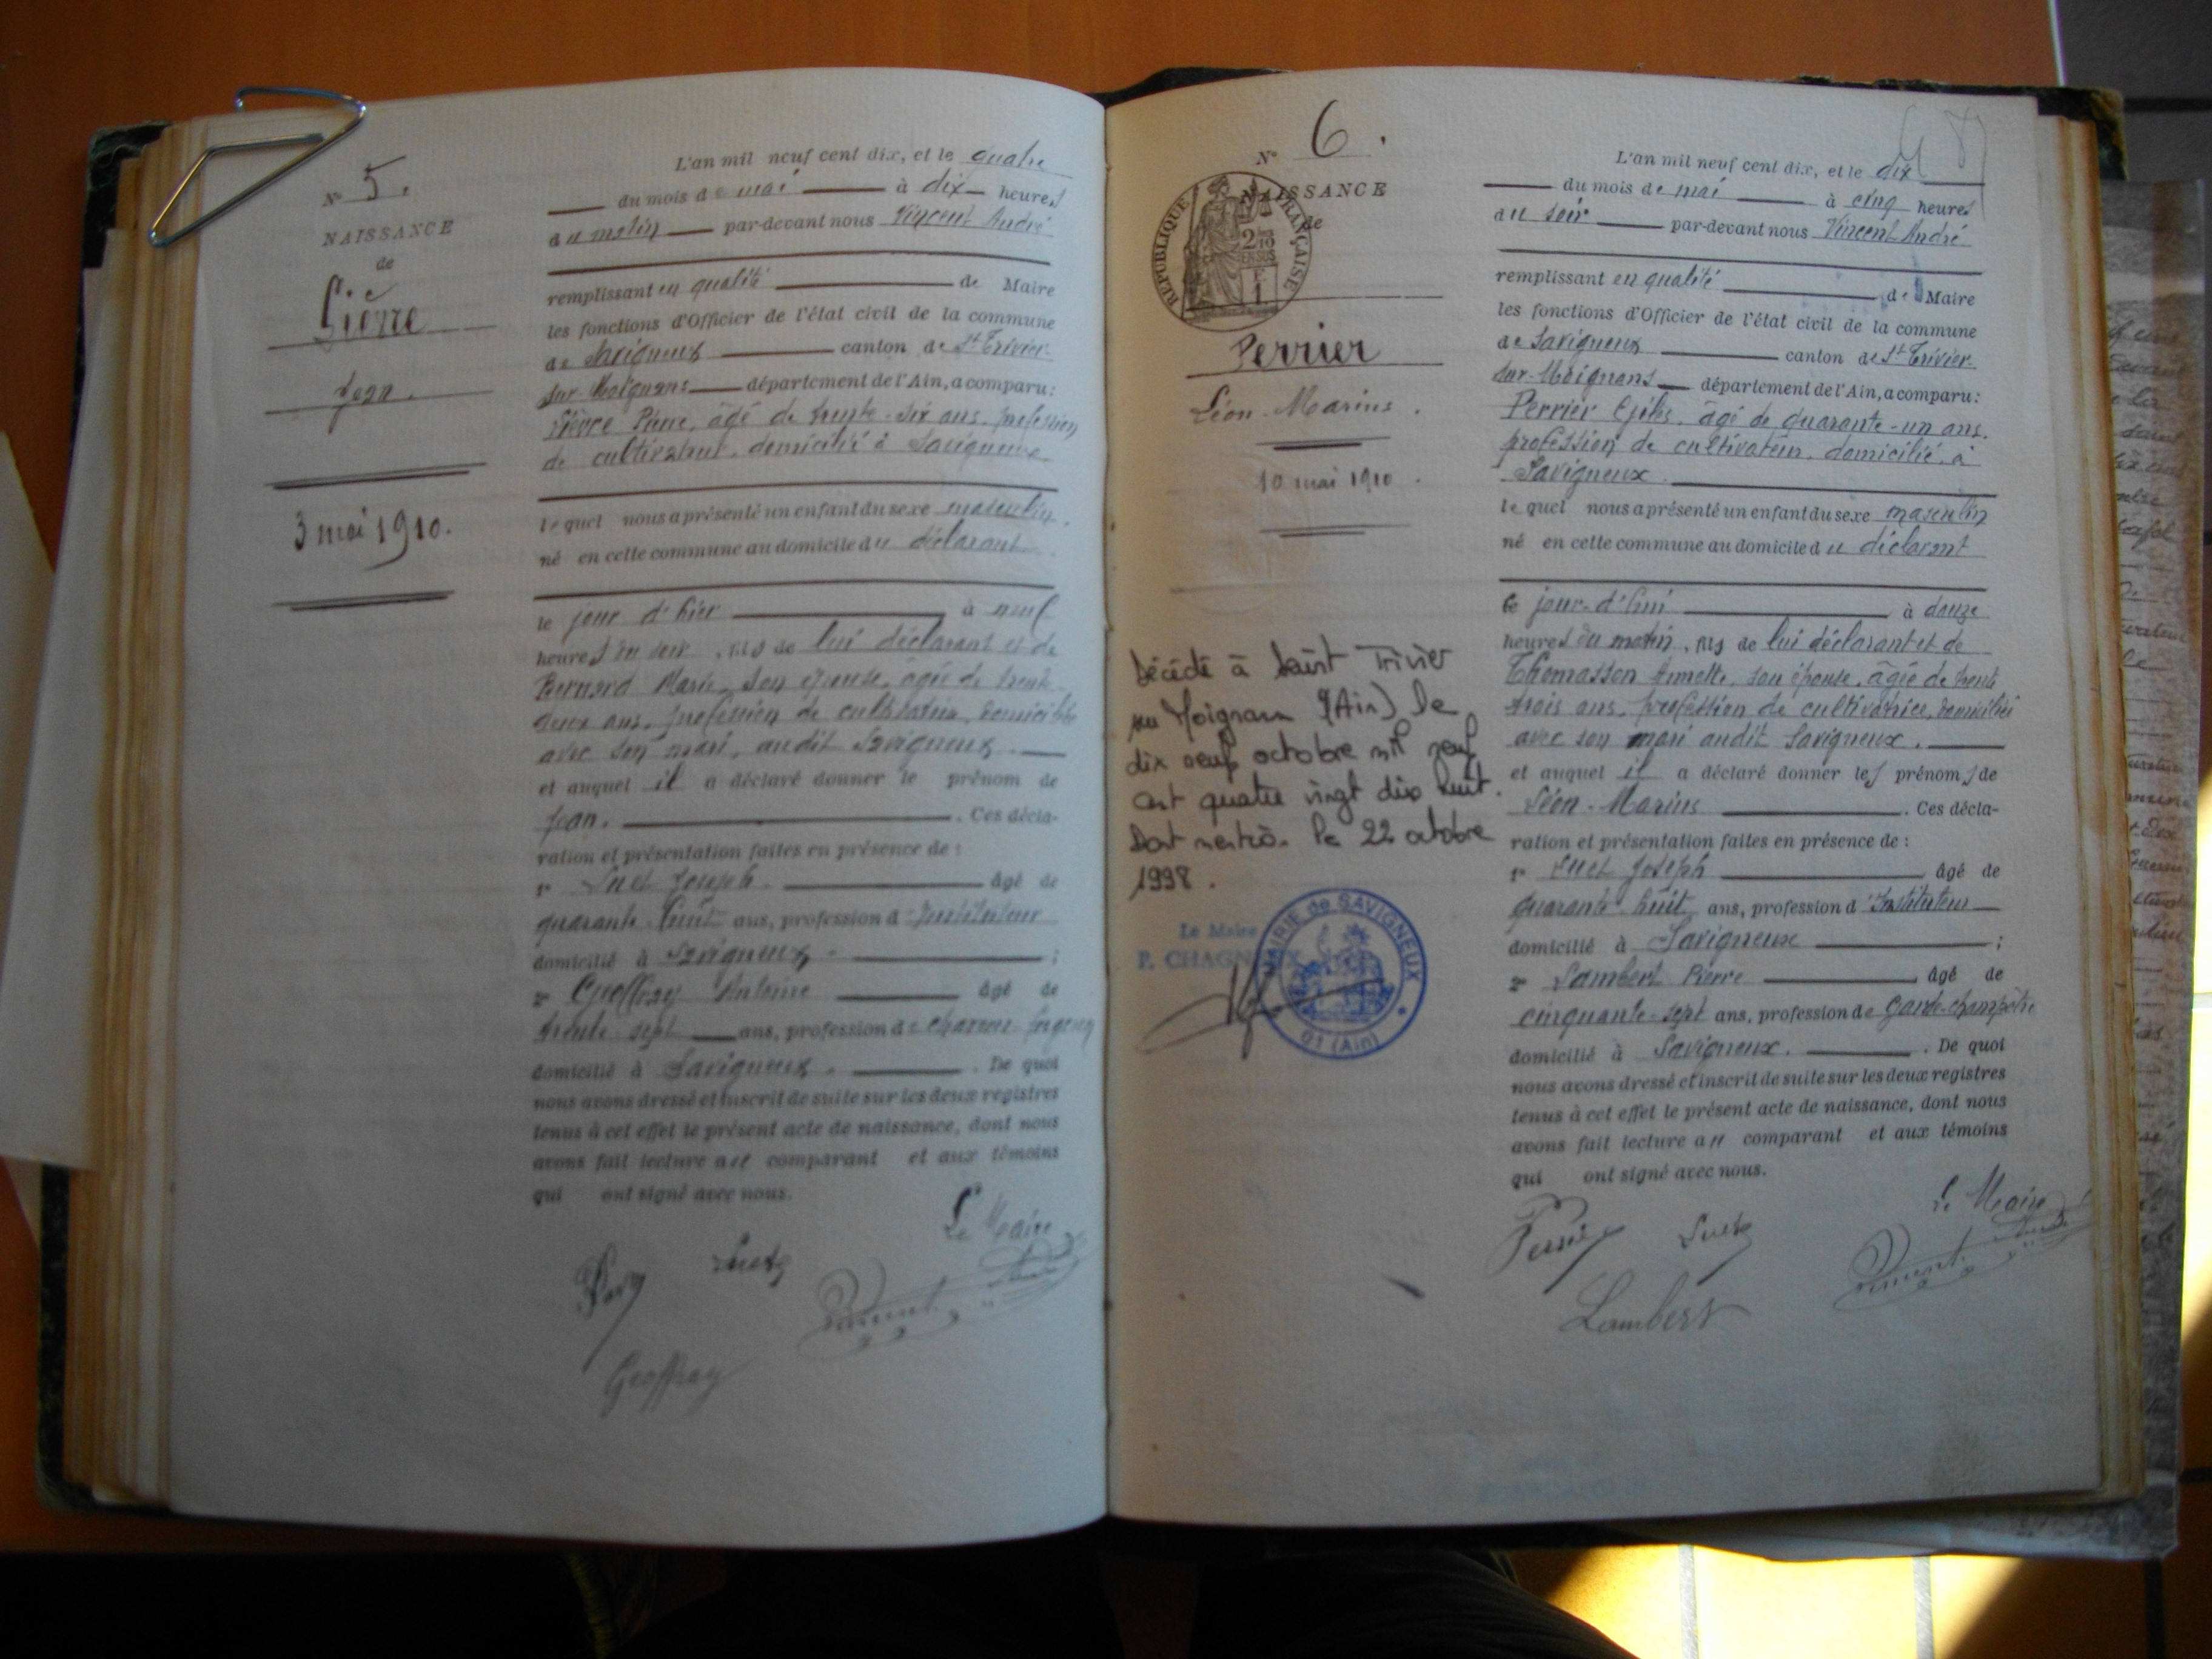 N° 5.
NAISSANCE
de
Lièvre
Jean.
3 mai 1910.
L'an mil neuf cent dix, et le quatre
du mois de mai à dix heures
du matin par-devant nous Vincent André
remplissant en qualité de Maire
les fonctions d'Officier de l'état civil de la commune
de Savigneux canton de St Trivier-
sur-Moignans département de l'Ain, a comparu:
Lièvre Pierre, âgé de trente-six ans, profession
de cultivateur, domicilié à Savigneux
lequel nous a présenté un enfant du sexe masculin,
né en cette commune au domicile du déclarant
le jour d'hier à neuf
heures du soir, fils de lui déclarant et de
Bernard Marie, son épouse, âgée de trente-
deux ans, profession de cultivatrice, domiciliée
avec son mari, audit Savigneux.
et auquel il a déclaré donner le prénom de
Jean. Ces décla-
ration et présentation faites en présence de :
1° Suet Joseph. âgé de
quarante-huit ans, profession d'Instituteur
domicilié à Savigneux ;
2° Geoffray Antoine âgé de
trente-sept ans, profession de charron-forgeron
domicilié à Savigneux. De quoi
nous avons dressé et inscrit de suite sur les deux registres
tenus à cet effet le présent acte de naissance, dont nous
avons fait lecture au comparant et aux témoins
qui ont signé avec nous.
Le Maire
Suet
Vincent André
Geoffray
N° 6.
NAISSANCE
de
REPUBLIQUE FRANÇAISE
2/10 EN SUS
1 F
Perrier
Léon-Marius.
10 mai 1910.
Décédé à Saint Trivier
sur Moignans (Ain) le
dix neuf octobre mil neuf
cent quatre vingt dix huit.
Dont mention. le 22 octobre
1998.
Le Maire
P. CHAGNEUX
MAIRIE de SAVIGNEUX
01 (Ain)
L'an mil neuf cent dix, et le dix
du mois de mai à cinq heures
du soir par-devant nous Vincent André
remplissant en qualité de Maire
les fonctions d'Officier de l'état civil de la commune
de Savigneux canton de St Trivier-
sur-Moignans département de l'Ain, a comparu:
Perrier âgé de quarante-un ans,
profession de cultivateur, domicilié à
Savigneux.
lequel nous a présenté un enfant du sexe masculin
né en cette commune au domicile du déclarant
le jour-d'hui à douze
heures du matin, fils de lui déclarant et de
Thomasson son épouse, âgée de trente
trois ans, profession de cultivatrice, domiciliée
avec son mari audit Savigneux.
et auquel il a déclaré donner les prénoms de
Léon-Marius. Ces décla-
ration et présentation faites en présence de :
1° Suet Joseph âgé de
quarante-huit ans, profession d'Instituteur
domicilié à Savigneux ;
2° Lambert Pierre âgé de
cinquante-sept ans, profession de Garde-champêtre
domicilié à Savigneux. De quoi
nous avons dressé et inscrit de suite sur les deux registres
tenus à cet effet le présent acte de naissance, dont nous
avons fait lecture au comparant et aux témoins
qui ont signé avec nous.
Le Maire
Perrier Suet
Vincent André
Lambert